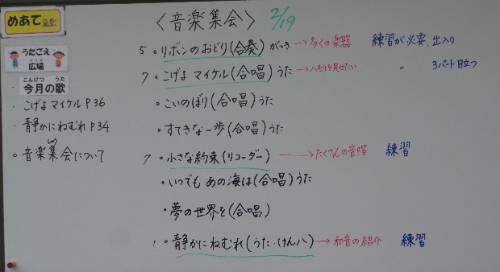 めあて
うたごえ
広場
こんげつ うた
今月の歌
・こげよマイケル P36
静かにねむれ P34
・音楽集会について
〈音楽集会〉 2/19
5 ・リボンのおどり(合奏)がっき →多くの楽器 練習が必要、出入り
7 ・こげよ マイケル(合唱)うた →ハモりを見せたい 〃 3パート目立つ
・こいのぼり(合唱)うた
・すてきな一歩(合唱)うた
7 ・小さな約束(リコーダー) →たくさんの音唱 練習
・いつでもあの海は(合唱)うた
・夢の世界を(合唱)
1 ・静かにねむれ(うた・けんハ) →和音の紹介 練習